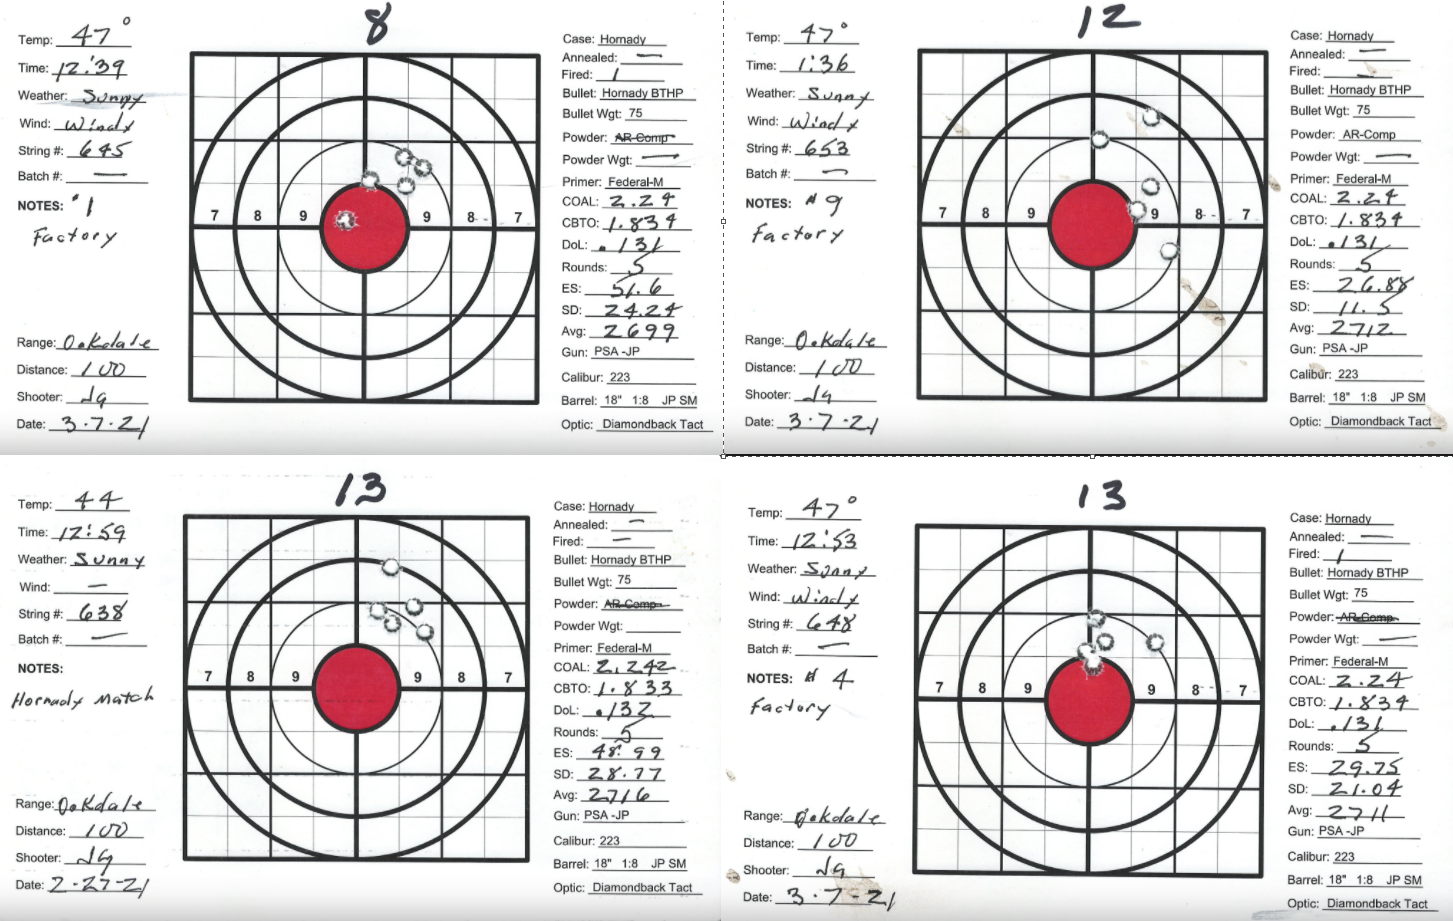 8
Temp: 47°
Time: 12:39
Weather: Sunny
Wind: Windy
String #: 645
Batch #: —
NOTES: #1
Factory
Range: Oakdale
Distance: 100
Shooter: JG
Date: 3-7-21
7 8 9 9 8 7
Case: Hornady
Annealed: —
Fired: 1
Bullet: Hornady BTHP
Bullet Wgt: 75
Powder: AR-Comp
Powder Wgt: —
Primer: Federal-M
COAL: 2.24
CBTO: 1.834
DoL: .131
Rounds: 5
ES: 51.6
SD: 24.24
Avg: 2699
Gun: PSA -JP
Calibur: 223
Barrel: 18" 1:8 JP SM
Optic: Diamondback Tact
12
Temp: 47°
Time: 1:36
Weather: Sunny
Wind: Windy
String #: 653
Batch #: —
NOTES: #9
Factory
Range: Oakdale
Distance: 100
Shooter: JG
Date: 3-7-21
7 8 9 9 8 7
Case: Hornady
Annealed: —
Fired: —
Bullet: Hornady BTHP
Bullet Wgt: 75
Powder: AR-Comp
Powder Wgt: —
Primer: Federal-M
COAL: 2.24
CBTO: 1.834
DoL: .131
Rounds: 5
ES: 26.88
SD: 11.5
Avg: 2712
Gun: PSA -JP
Calibur: 223
Barrel: 18" 1:8 JP SM
Optic: Diamondback Tact
13
Temp: 44
Time: 12:59
Weather: Sunny
Wind: —
String #: 638
Batch #: —
NOTES:
Hornady Match
Range: Oakdale
Distance: 100
Shooter: JG
Date: 2-27-21
7 8 9 9 8 7
Case: Hornady
Annealed: —
Fired: —
Bullet: Hornady BTHP
Bullet Wgt: 75
Powder: AR-Comp
Powder Wgt:
Primer: Federal-M
COAL: 2.242
CBTO: 1.833
DoL: .132
Rounds: 5
ES: 48.99
SD: 28.77
Avg: 2716
Gun: PSA -JP
Calibur: 223
Barrel: 18" 1:8 JP SM
Optic: Diamondback Tact
13
Temp: 47°
Time: 12:53
Weather: Sunny
Wind: Windy
String #: 648
Batch #: —
NOTES: #4
Factory
Range: Oakdale
Distance: 100
Shooter: JG
Date: 3-7-21
7 8 9 9 8 7
Case: Hornady
Annealed: —
Fired: 1
Bullet: Hornady BTHP
Bullet Wgt: 75
Powder: AR-Comp
Powder Wgt: —
Primer: Federal-M
COAL: 2.24
CBTO: 1.834
DoL: .131
Rounds: 5
ES: 29.75
SD: 21.04
Avg: 2711
Gun: PSA -JP
Calibur: 223
Barrel: 18" 1:8 JP SM
Optic: Diamondback Tact